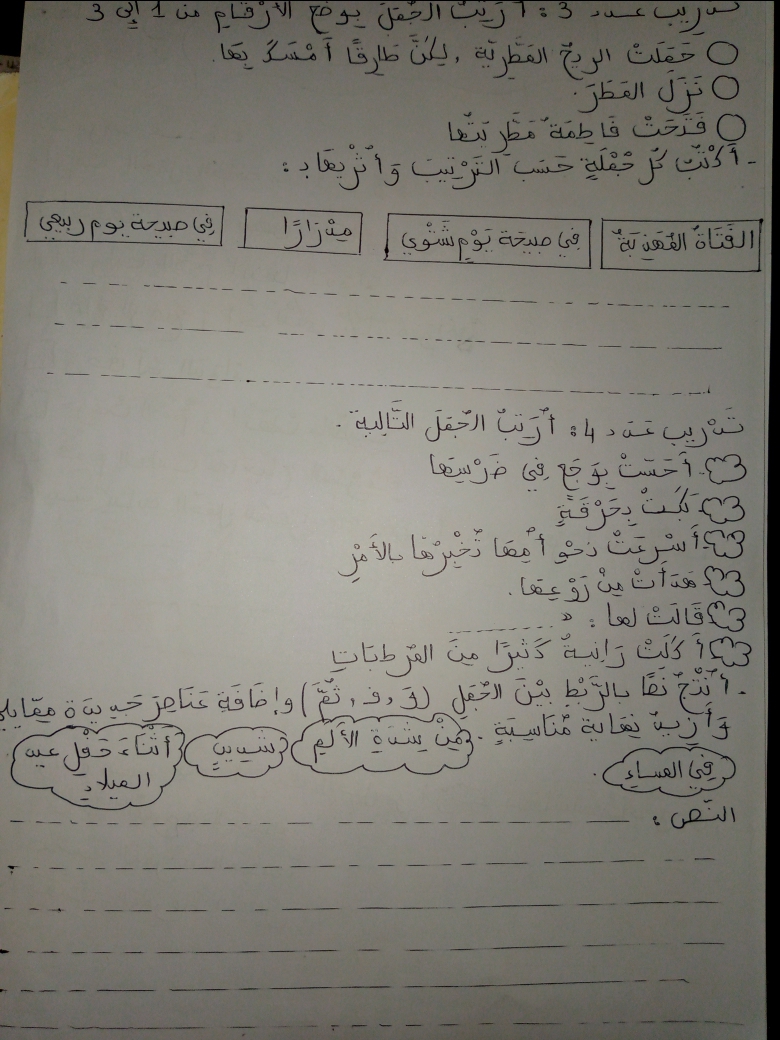 تدريب عدد 3: أُرَتِّبُ الجُمَلَ بِوَضْعِ الأرْقَامِ من 1 إلى 3
حَمَلَتْ الريحُ المَطَرِيَّةَ ، لكِنَّ طَارِقًا أَمْسَكَ بِهَا.
نَزَلَ المَطَرُ.
فَتَحَتْ فَاطِمَةُ مَطَرِيَّتَها
- أَكْتُبُ كُلّ جُمْلَةٍ حَسَبَ التَّرْتِيبِ وَأُثْرِيهَا بـ:
الفَتَاةُ المُهَذَّبَةُ
فِي صبيحَة يَوْمٍ شَتْوِي
مِدْرَارًا
فِي صبيحة يوم ربيعي
تَدْرِيب عَدَد 4: أُرَتِّبُ الجُمَلَ التَّالِيةَ .
أَحَسَّتْ بِوَجَعٍ فِي ضَرْسِهَا
بَكَتْ بِحَرْقَةٍ
أَسْرَعَتْ نَحْوَ أُمِّهَا تُخْبِرُهَا بالأَمْرِ
هَدَأَتْ مِنْ رَوْعِهَا.
قَالَتْ لها : "..........
أَكَلَتْ رَانِيةُ كَثِيرًا مِنَ المُرَطِبَاتِ
- أُنْتِجُ نَصًّا بالرَّبْطِ بَيْنَ الجُمَلِ (وَ ، فَ ، ثُمَّ) وإضَافَةِ عَنَاصِرَ جَدِيدَةٍ مِمَّا يلي
وَأَزِيدُ نِهَايةً مُنَاسِبَةٍ .
مِنْ شِدَّةِ الأَلَمِ
شديدٍ
أَثْنَاءَ حَفْلِ عيد الميلادِ
فِي المساءِ .
النّص :